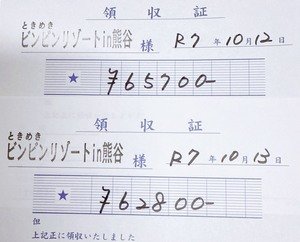 領収証
ときめき
ビンビンリゾートin熊谷 様 R7年10月12日
★ ¥65700-
領収証
ときめき
ビンビンリゾートin熊谷 様 R7年10月13日
★ ¥62800-
但
上記正に領収いたしました